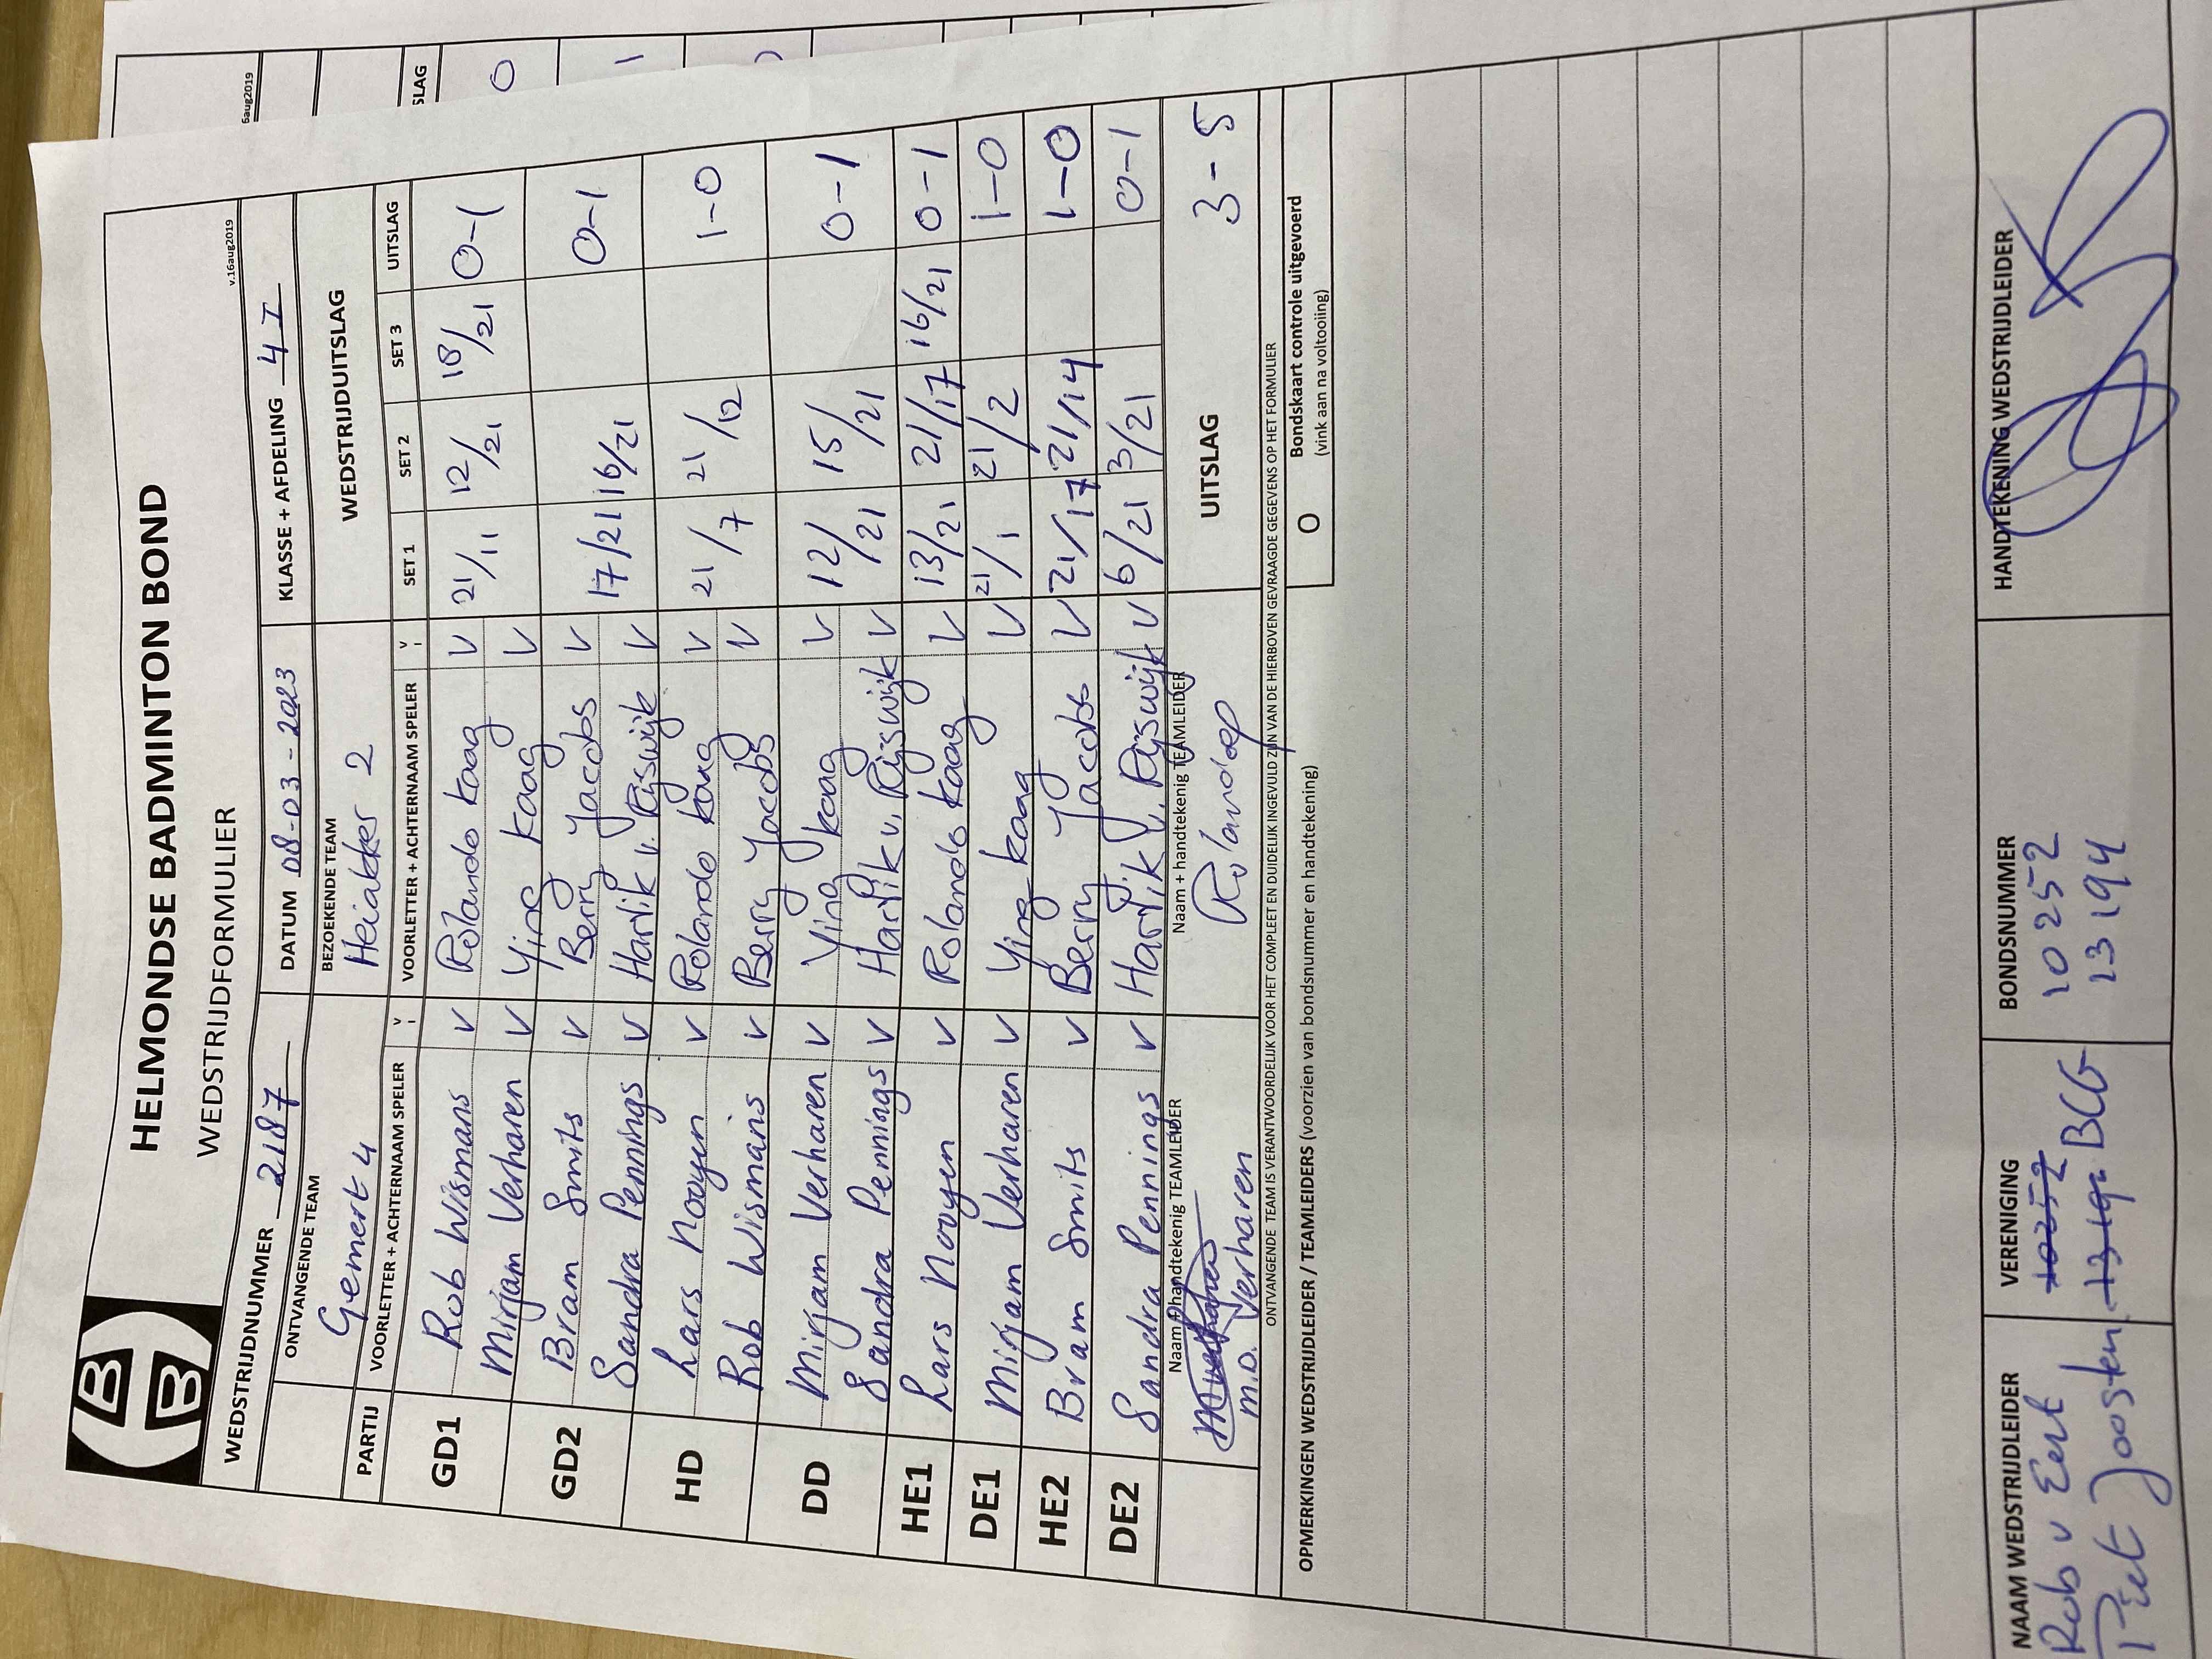 HELMONDSE BADMINTON BOND
WEDSTRIJDFORMULIER
v.16aug2019
WEDSTRIJDNUMMER 2187 DATUM 08-03-2023 KLASSE + AFDELING 4 I
ONTVANGENDE TEAM BEZOEKENDE TEAM WEDSTRIJDUITSLAG
Gemert 4 Heiakker 2
PARTIJ VOORLETTER + ACHTERNAAM SPELER V VOORLETTER + ACHTERNAAM SPELER V SET 1 SET 2 SET 3 UITSLAG
GD1 Rob Wismans V Rolando Kaag V 21/11 12/21 18/21 0-1
Mirjam Verharen V Ying Kaag V
GD2 Bram Smits V Berry Jacobs V 17/21 16/21 0-1
Sandra Pennings V Hartik v. Rijswijk V
HD Lars Nooyen V Rolando Kaag V 21/7 21/12 1-0
Rob Wismans V Berry Jacobs V
DD Mirjam Verharen V Ying Kaag V 12/21 15/21 0-1
Sandra Pennings V Hartik v. Rijswijk V
HE1 Lars Nooyen V Rolando Kaag V 13/21 21/17 16/21 0-1
DE1 Mirjam Verharen V Ying Kaag V 21/1 21/2 1-0
HE2 Bram Smits V Berry Jacobs V 21/17 21/14 1-0
DE2 Sandra Pennings V Hartik v. Rijswijk V 6/21 3/21 0-1
Naam + handtekenig TEAMLEIDER Naam + handtekenig TEAMLEIDER UITSLAG 3-5
M.D. Verharen
ONTVANGENDE TEAM IS VERANTWOORDELIJK VOOR HET COMPLEET EN DUIDELIJK INGEVULD ZIJN VAN DE HIERBOVEN GEVRAAGDE GEGEVENS OP HET FORMULIER
OPMERKINGEN WEDSTRIJDLEIDER / TEAMLEIDERS (voorzien van bondsnummer en handtekening) O Bondskaart controle uitgevoerd
(vink aan na voltooiing)
NAAM WEDSTRIJDLEIDER VERENIGING BONDSNUMMER HANDTEKENING WEDSTRIJDLEIDER
Rob v Eert 10252 10252
Piet Joosten BCG 13194
6aug2019
SLAG
0
1